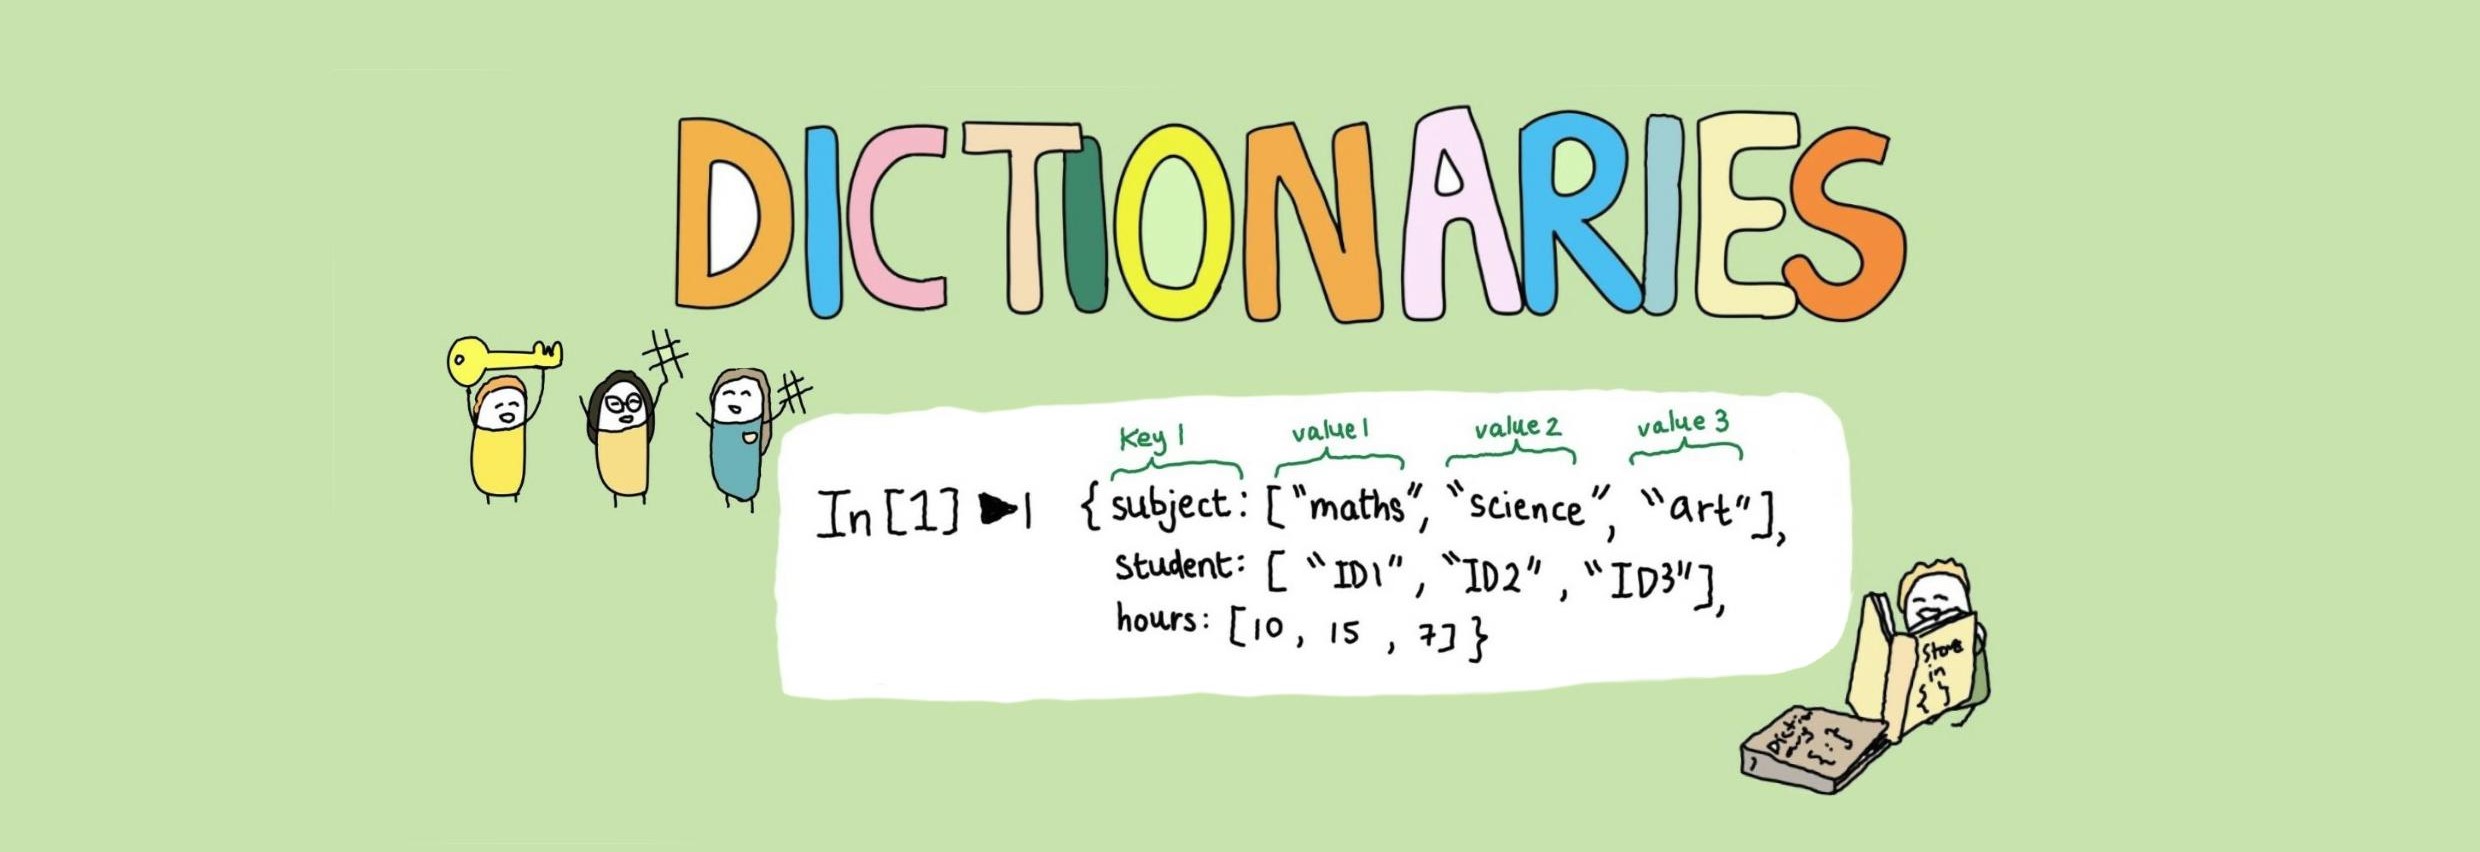 DICTIONARIES
#
#
Key 1 value 1 value 2 value 3
In [1] ▶| { subject: ["maths", "science", "art"],
student: [ "ID1", "ID2", "ID3"],
hours: [10, 15, 7] }
Store
in
{ }